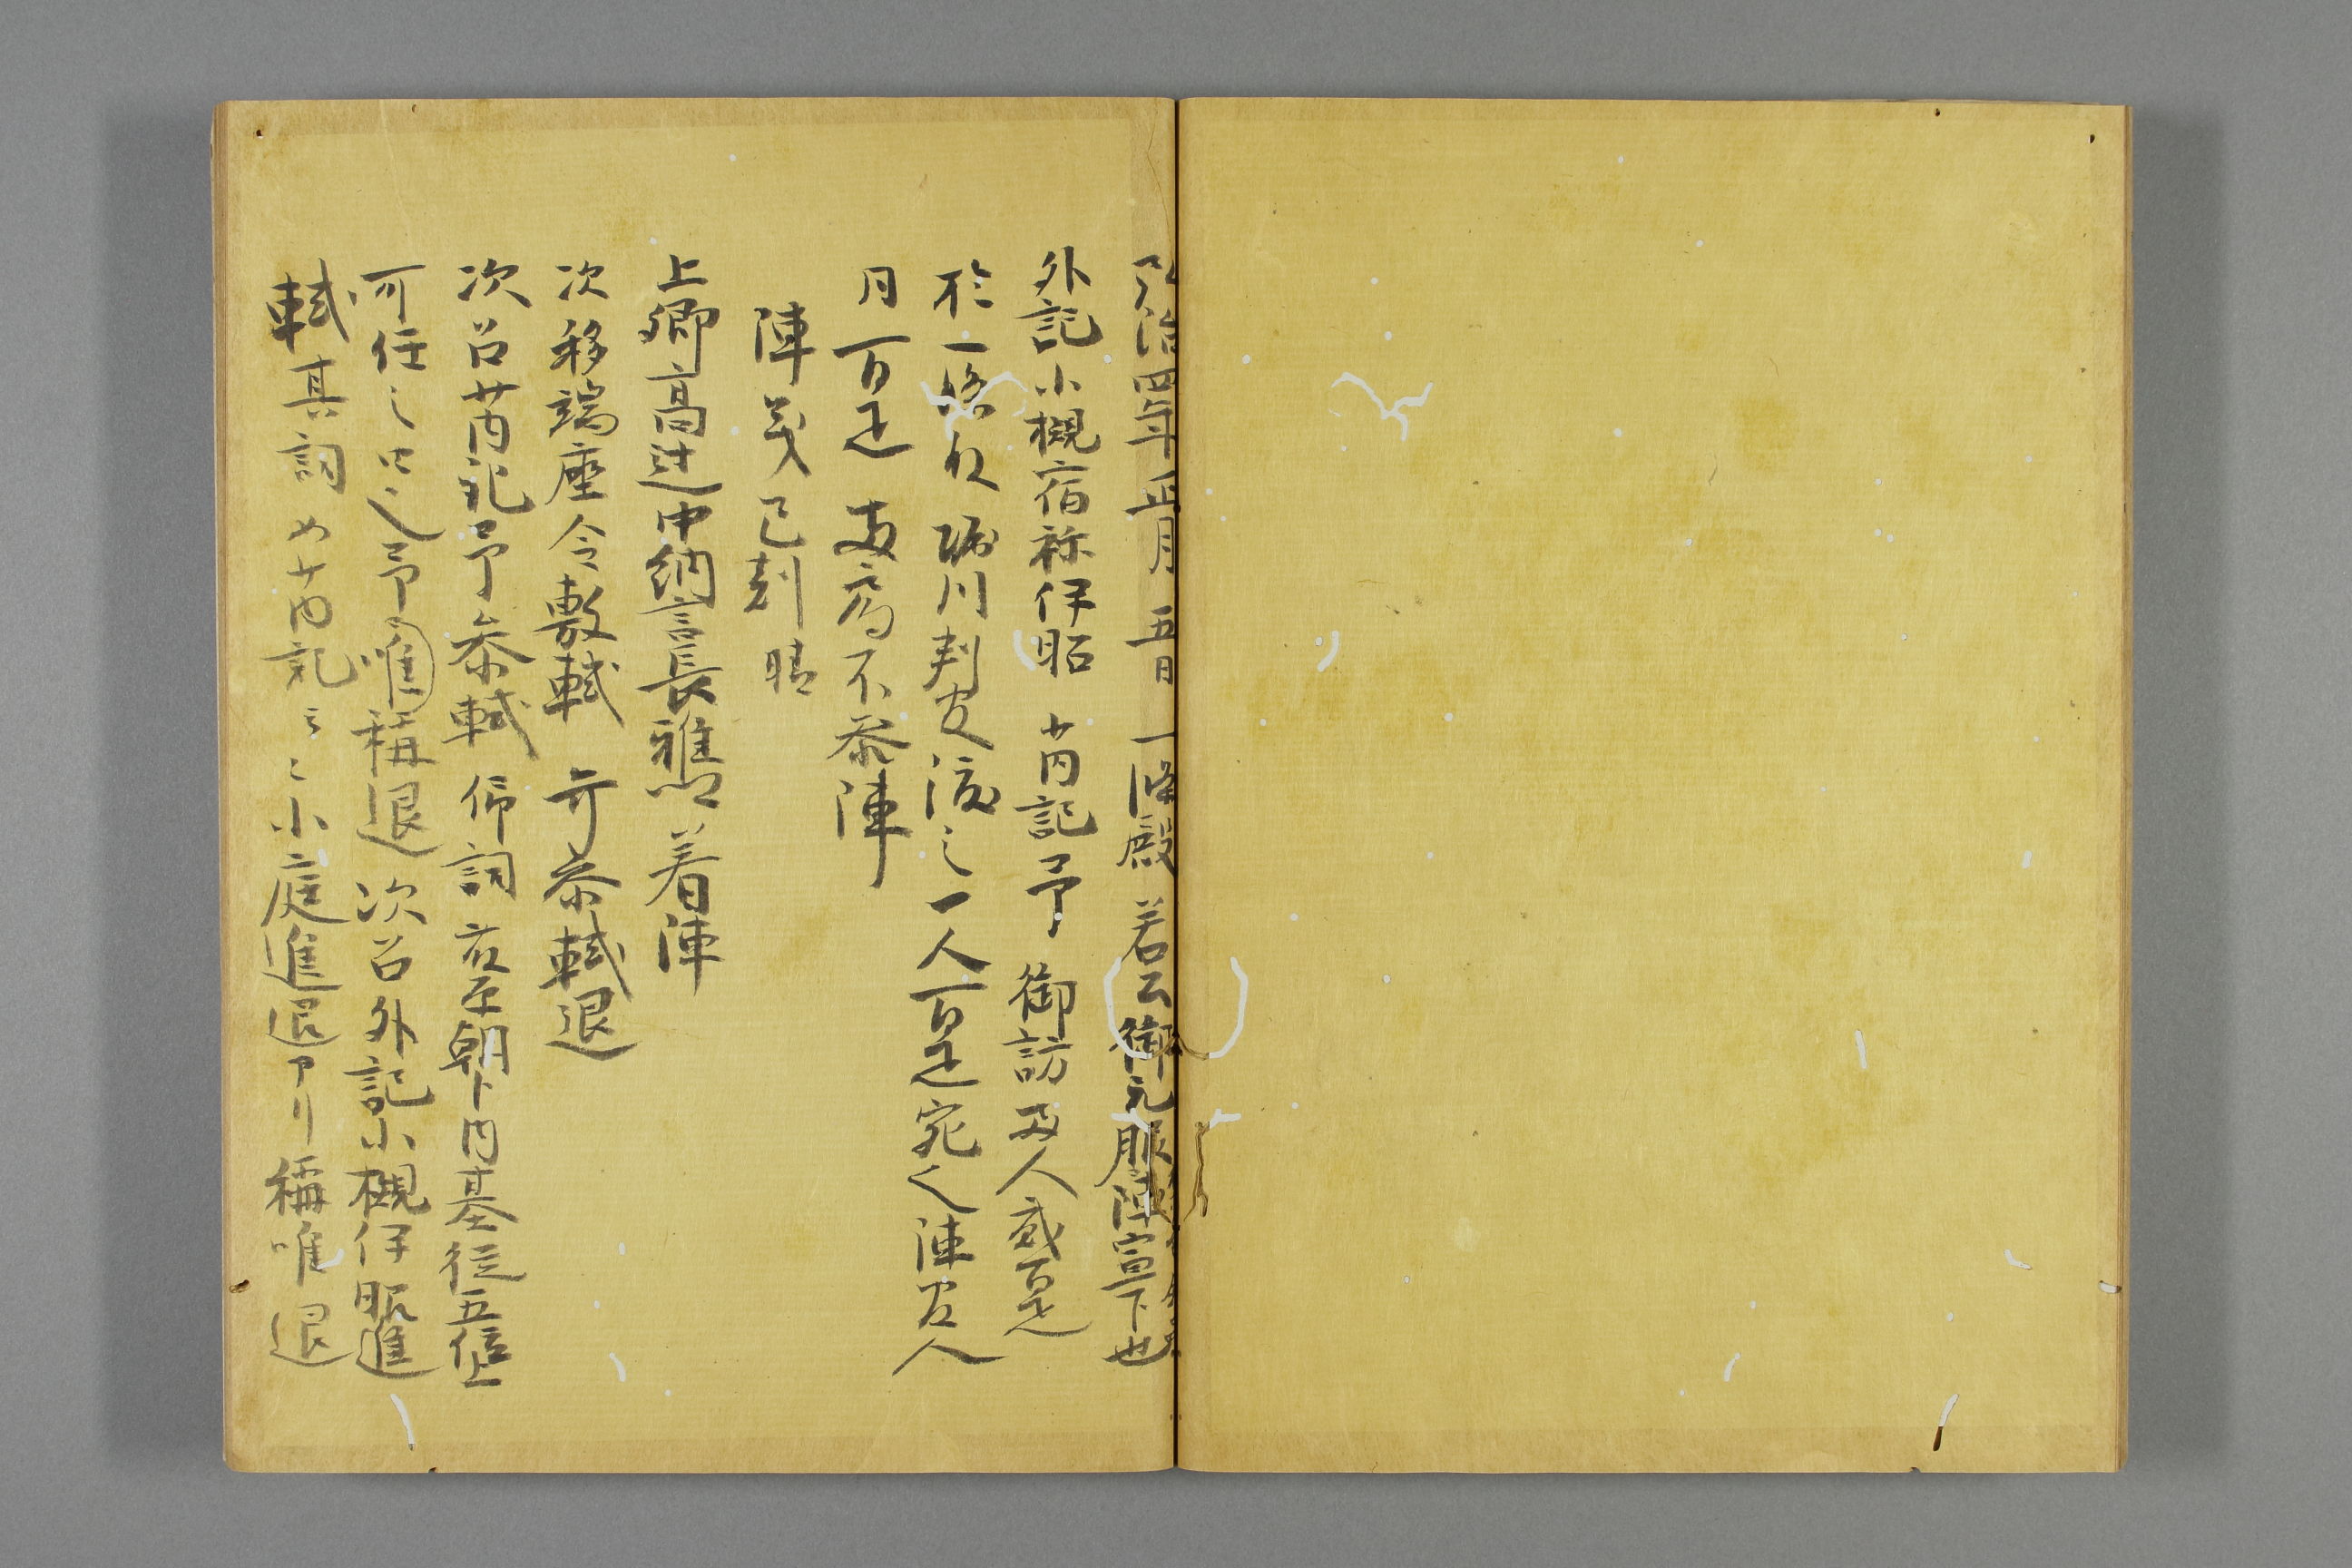 弘治四年正月五日一條殿若公御元服陣宣下也
外記小槻宿祢伊昭 少内記予 御訪 両人貳百疋
於一條殿 堀川判官渡之 一人百疋宛也 陣官人
同百疋 両局不参陣
陣義已刻 晴
上卿高辻中納言長雅卿着陣
次移端座令敷軾 弁参軾退
次召少内記 予参軾 仰詞 藤原朝臣内基従五位上
可任之由也 予唯稱退 次召外記小槻伊昭進
軾其詞如少内記 小庭進退アリ稱唯退